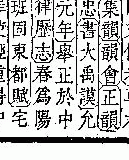 集韻韻會正韻
忠書大禹謨允
元年舉正於中
律歷志春爲陽
班固東都賦宅